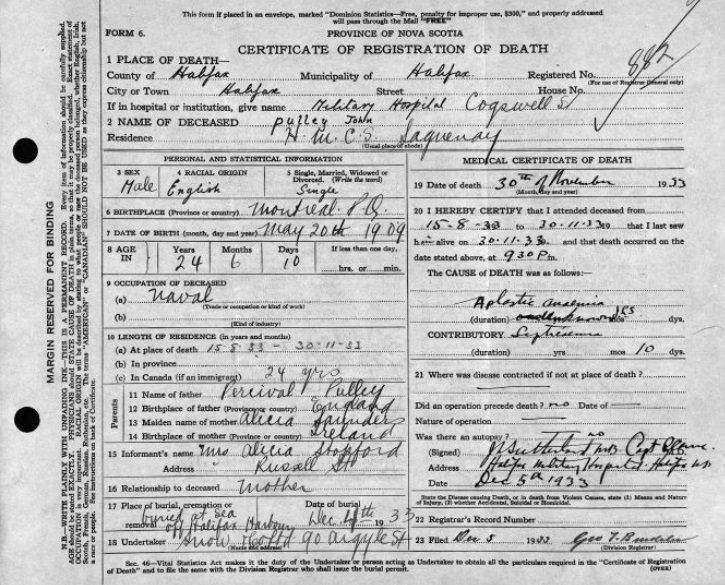 This form if placed in an envelope, marked "Dominion Statistics—Free, penalty for improper use, $300," and properly addressed
will pass through the Mail "FREE"
FORM 6.
PROVINCE OF NOVA SCOTIA
CERTIFICATE OF REGISTRATION OF DEATH
1 PLACE OF DEATH—
County of Halifax Municipality of Halifax. Registered No. 882
(For use of Registrar General only)
City or Town Halifax Street House No.
If in hospital or institution, give name Military Hospital Cogswell St
2 NAME OF DECEASED Pulley John
Residence H.M.C.S. Saguenay
(Usual place of abode)
PERSONAL AND STATISTICAL INFORMATION
3 SEX Male
4 RACIAL ORIGIN English
5 Single, Married, Widowed or Divorced. (Write the word) Single
6 BIRTHPLACE (Province or country) Montreal P.Q.
7 DATE OF BIRTH (month, day and year) May 20th 1909
8 AGE IN Years 24 Months 6 Days 10 If less than one day, hrs. or min.
9 OCCUPATION OF DECEASED
(a) Naval
(Trade or occupation or kind of work)
(b)
(Kind of industry)
10 LENGTH OF RESIDENCE (in years and months)
(a) At place of death 15-8-33 - 30-11-33
(b) In province
(c) In Canada (if an immigrant) 24 yrs
Parents
11 Name of father Percival Pulley
12 Birthplace of father (Province or country) England
13 Maiden name of mother Alicia Saunders
14 Birthplace of mother (Province or country) Ireland
15 Informant's name Mrs Alicia Stopford
Address Russell St
16 Relationship to deceased Mother
17 Place of burial, cremation or removal buried at Sea off Halifax Harbour Date of burial Dec 1933
18 Undertaker Snow & Co Ltd 90 Argyle St
(Name and address)
MEDICAL CERTIFICATE OF DEATH
19 Date of death 30th of November 1933
(Month, day and year)
20 I HEREBY CERTIFY that I attended deceased from
15-8-33 to 30-11-33 19 that I last saw
him alive on 30.11.33 and that death occurred on the
date stated above, at 9.30 P m.
The CAUSE OF DEATH was as follows:—
Aplastic anaemia
(duration) unknown yrs dys.
CONTRIBUTORY Septicaemia
(duration) yrs mos 10 dys.
21 Where was disease contracted if not at place of death?
Did an operation precede death? no Date of —
Nature of operation —
Was there an autopsy? no
(Signed) Sutherland M.D. Capt
Address Halifax Military Hospital. Halifax N.S.
Date Dec 5th 1933
State the Disease causing Death, or in death from Violent Causes, state (1) Means and Nature
of Injury, (2) whether Accidental, Suicidal or Homicidal.
22 Registrar's Record Number
23 Filed Dec 5 1933 Geo
(Division Registrar)
Sec. 46—Vital Statistics Act makes it the duty of the Undertaker or person acting as Undertaker to obtain all the particulars required in the "Certificate of Registration
of Death" and to file the same with the Division Registrar who shall issue the burial permit.
(OVER)
MARGIN RESERVED FOR BINDING
N.B.—WRITE PLAINLY WITH UNFADING INK—THIS IS A PERMANENT RECORD. Every item of information should be carefully supplied.
AGE should be stated EXACTLY. PHYSICIANS should STATE CAUSE OF DEATH in plain terms, so that it may be properly classified. Exact statement of
OCCUPATION is very important. RACIAL ORIGIN will be described by stating to what people or race the deceased person belonged, whether English, Irish,
Scotch, French, German, Russian, Ruthenian, etc. The terms "AMERICAN" or "CANADIAN" SHOULD NOT BE USED as they express citizenship but not
a race or people. See instructions on back of Certificate.